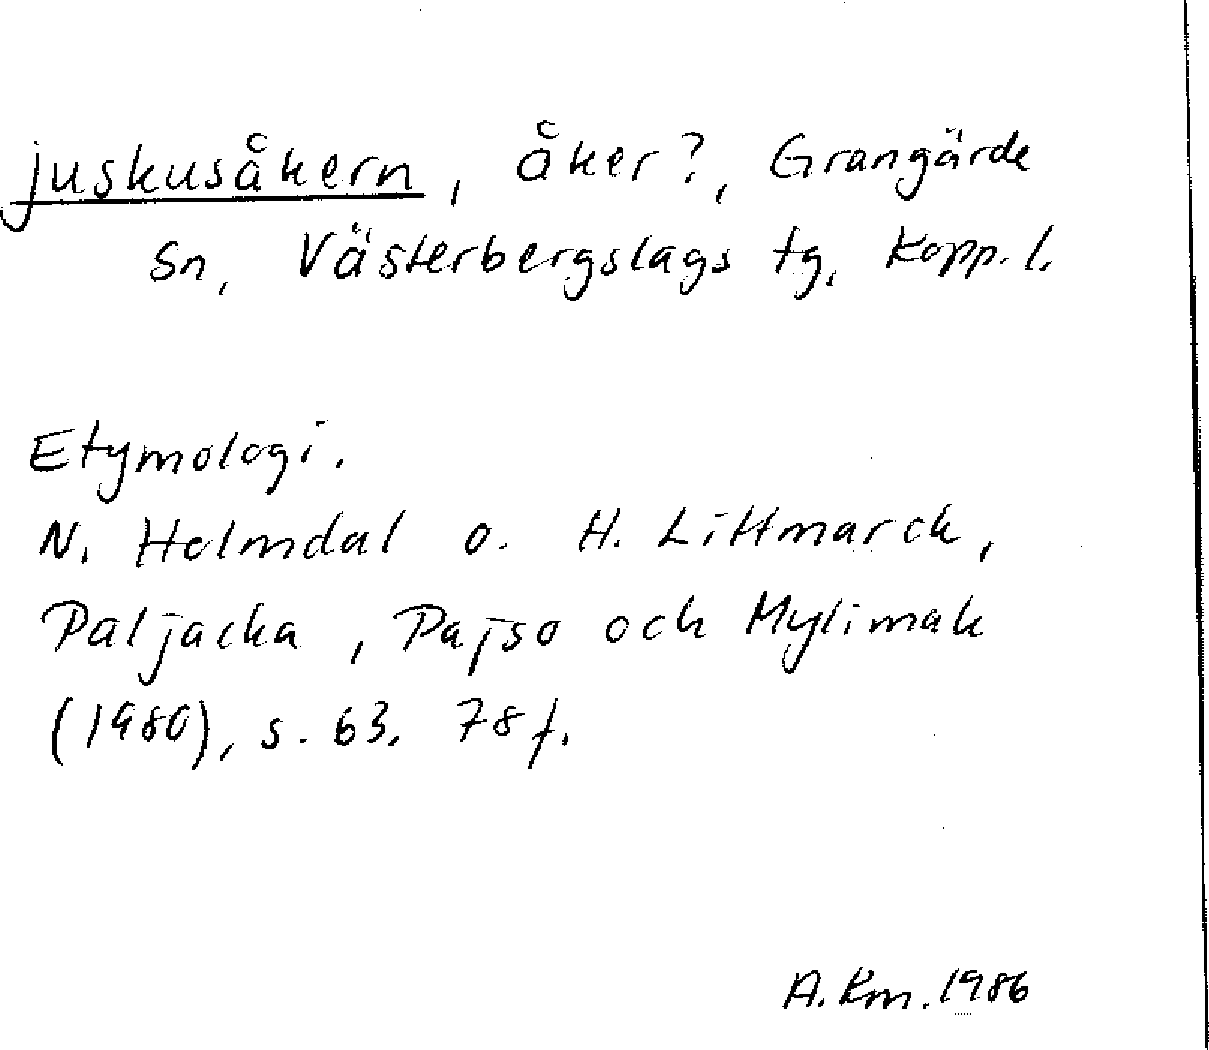 juskusåkern, åker?, Grangärde
Sn, Västerbergslags tg, Kopp. l.
Etymologi.
N. Holmdal o. H. Littmarck,
Paljacka, Pajso och Mylimak
(1980), s. 63. 78 f.
A. Km. 1986